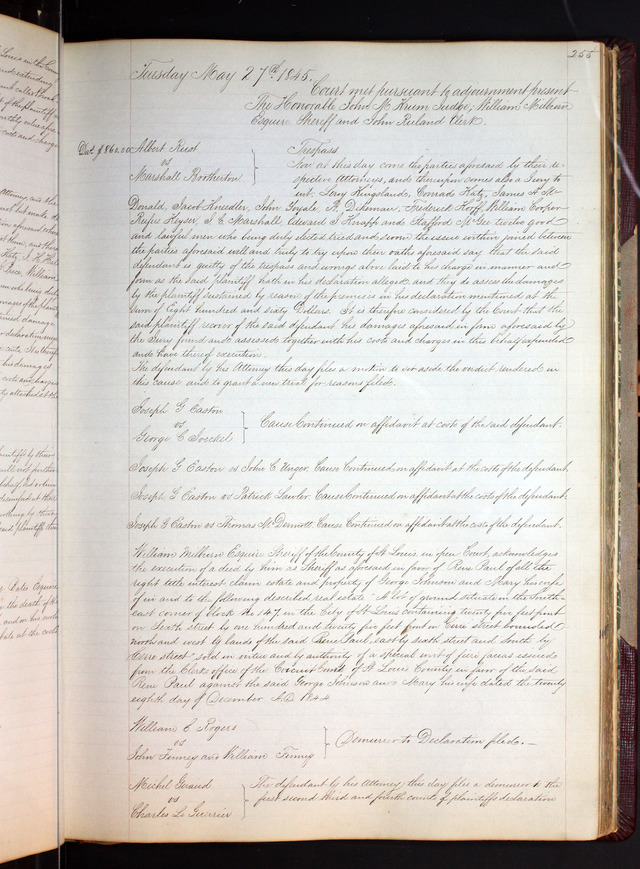 255
Tuesday May 27th 1845.
Court met pursuant to adjournment present
The Honorable John M. Krum Judge, William Milburn
Esquire Sheriff and John Ruland Clerk.
Albert Reest
vs
Marshall Brotherton
Trespass
Now at this day come the parties aforesaid by their re-
spective Attorneys, and thereupon comes also a Jury to
wit. Levy Kingsland, Conrad Katz, James A Mc
Donald, Jacob Knedler, John Goyale, R. Dikeman, Frederick Hoff, William Cooper
Rufus Keyser, J. C. Marshall, Edward J Knapp and Stafford McGee twelve good
and lawful men who being duly elected tried and sworn the issue within joined between
the parties aforesaid well and truly to try upon their oaths aforesaid say that the said
defendant is guilty of the trespass and wrongs above laid to his charge in manner and
form as the said plaintiff hath in his declaration alleged, and they do assess the damages
by the plaintiff sustained by reason of the premises in his declaration mentioned at the
sum of Eight hundred and sixty Dollars. It is therefore considered by the Court that the
said plaintiff recover of the said defendant his damages aforesaid in form aforesaid by
the Jury found and assessed together with his costs and charges in this behalf expended
and have thereof execution.
The defendant by his Attorney this day files a motion to set aside the verdict rendered in
this cause and to grant a new trial for reasons filed.
Joseph G Easton
vs
George C Soeckel
Cause Continued on affidavit at costs of the said defendant.
Joseph G Easton vs John C Unger, Cause Continued on affidavit at the costs of the defendant.
Joseph G Easton vs Patrick Lawler, Cause Continued on affidavit at the costs of the defendant.
Joseph G Easton vs Thomas McDermott Cause Continued on affidavit at the costs of the defendant.
William Milburn Esquire Sheriff of the County of St Louis, in open Court, acknowledges
the execution of a deed by him as Sheriff as aforesaid in favor of Rene Paul of all the
right title interest claim estate and property of George Johnson and Mary his wife
of in and to the following described real estate. A lot of ground situate in the South-
east corner of block No 147 in the City of St Louis containing twenty five feet front
on Sixth street by one hundred and twenty five feet front on Cerre street bounded
north and west by lands of the said Rene Paul, east by sixth street and South by
Cerre street sold in virtue and by authority of a special writ of fieri facias issued
from the Clerks office of the Circuit Court of St Louis County in favor of the said
Rene Paul against the said George Johnson and Mary his wife dated the twenty
eighth day of December A.D. 1844
William C Rogers
vs
John Finney and William Finney
Demurrer to Declaration filed.
Michel Giraud
vs
Charles Le Guerrier
The defendant by his Attorney, this day files a demurrer to the
first second third and fourth counts of plaintiffs declaration